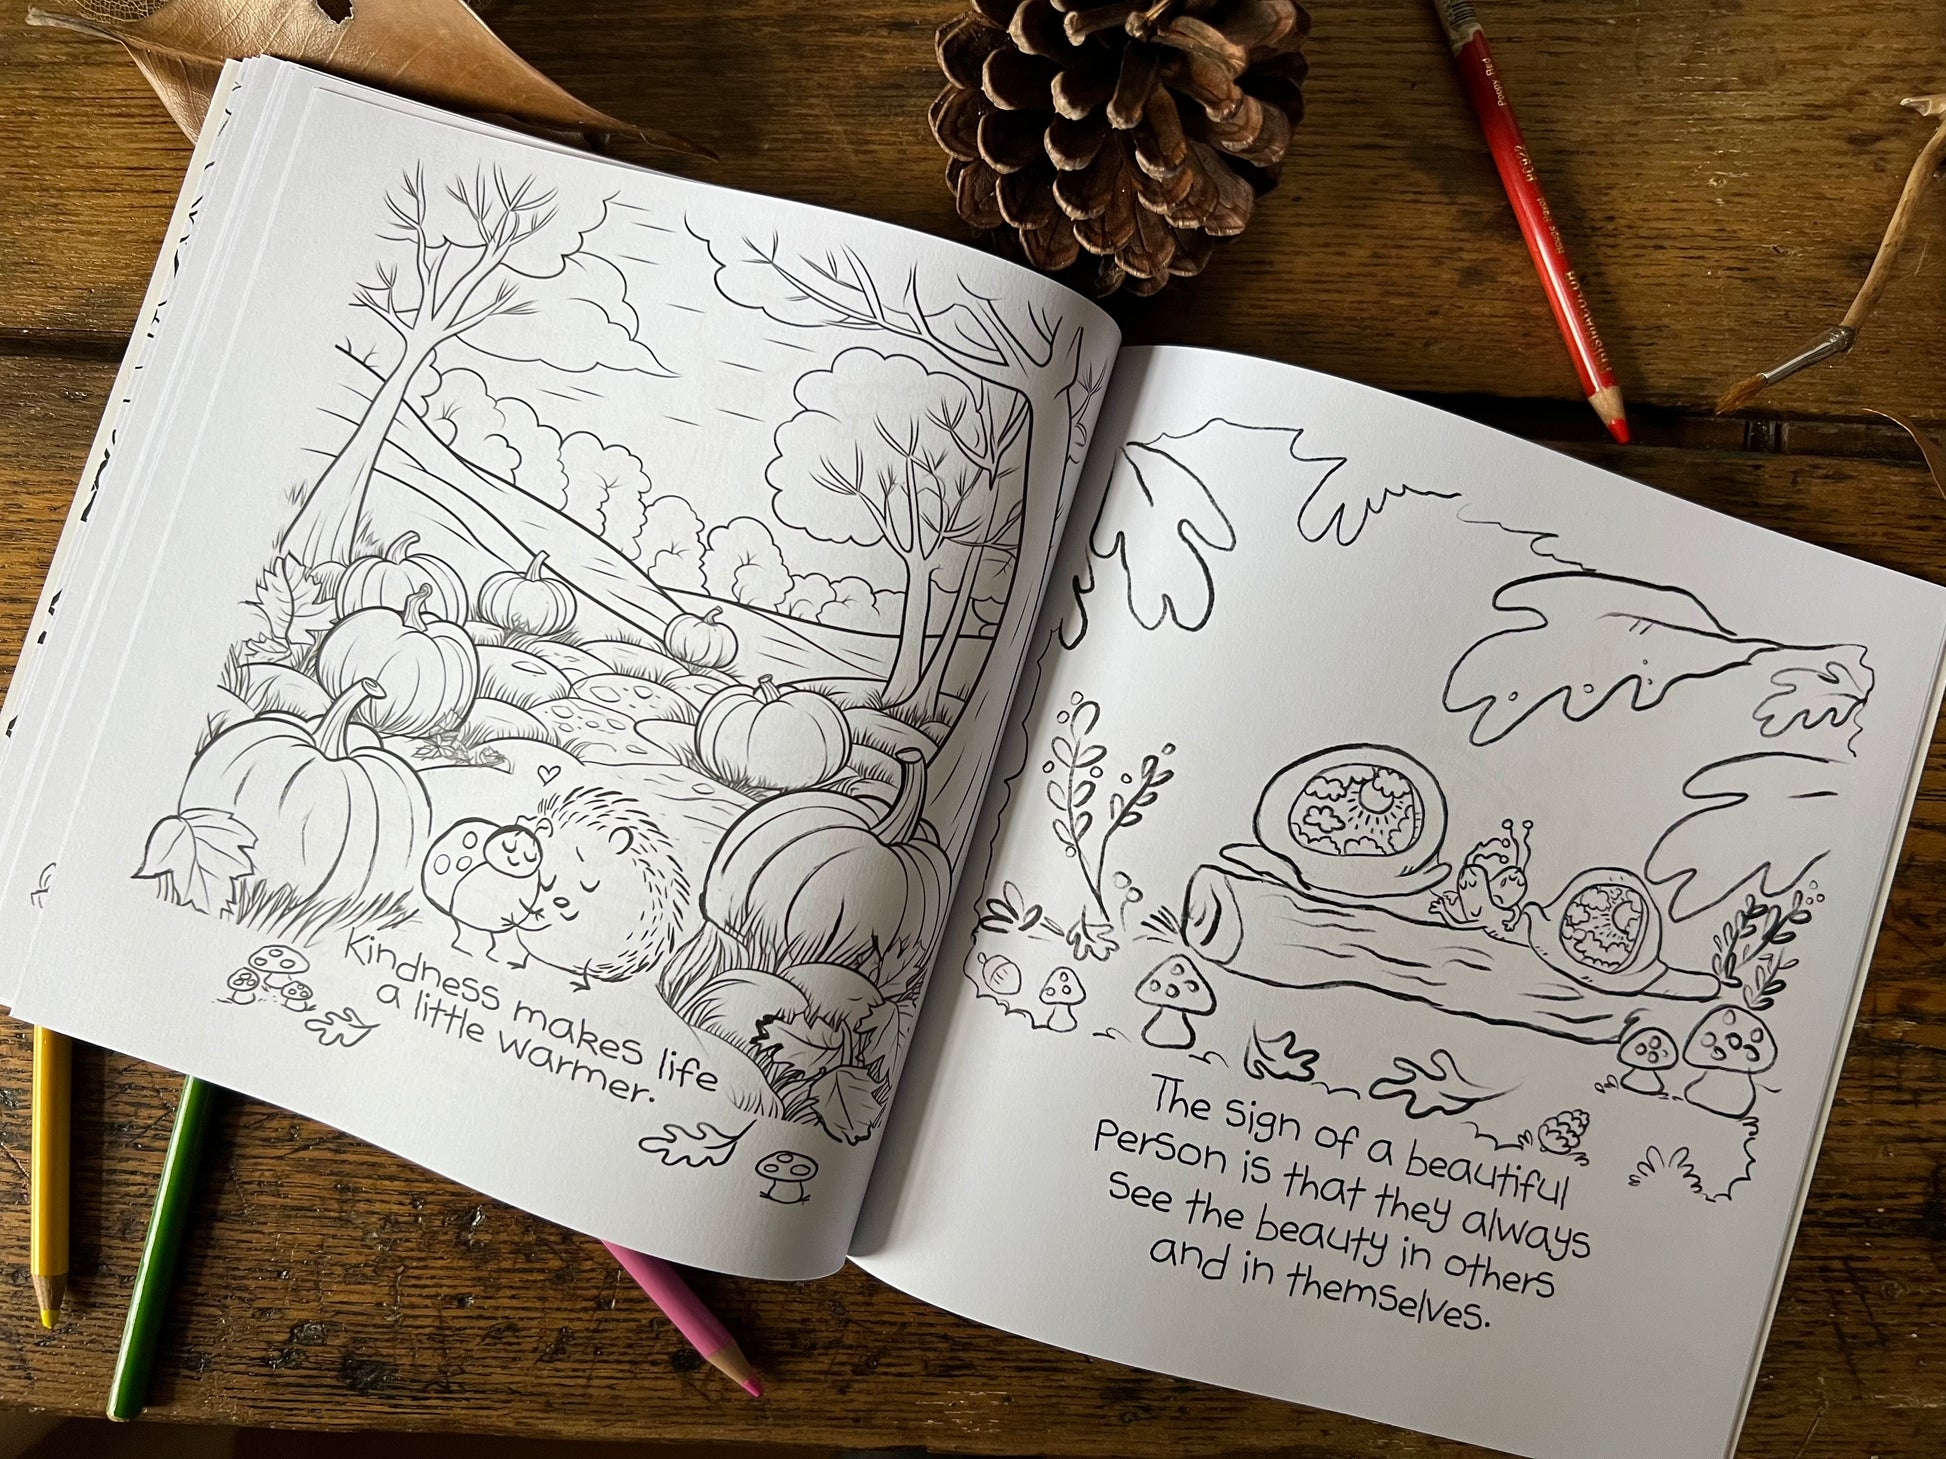 Kindness makes life
a little warmer.
The sign of a beautiful
Person is that they always
See the beauty in others
and in themselves.
PRISMACOLOR
PC922
Poppy Red